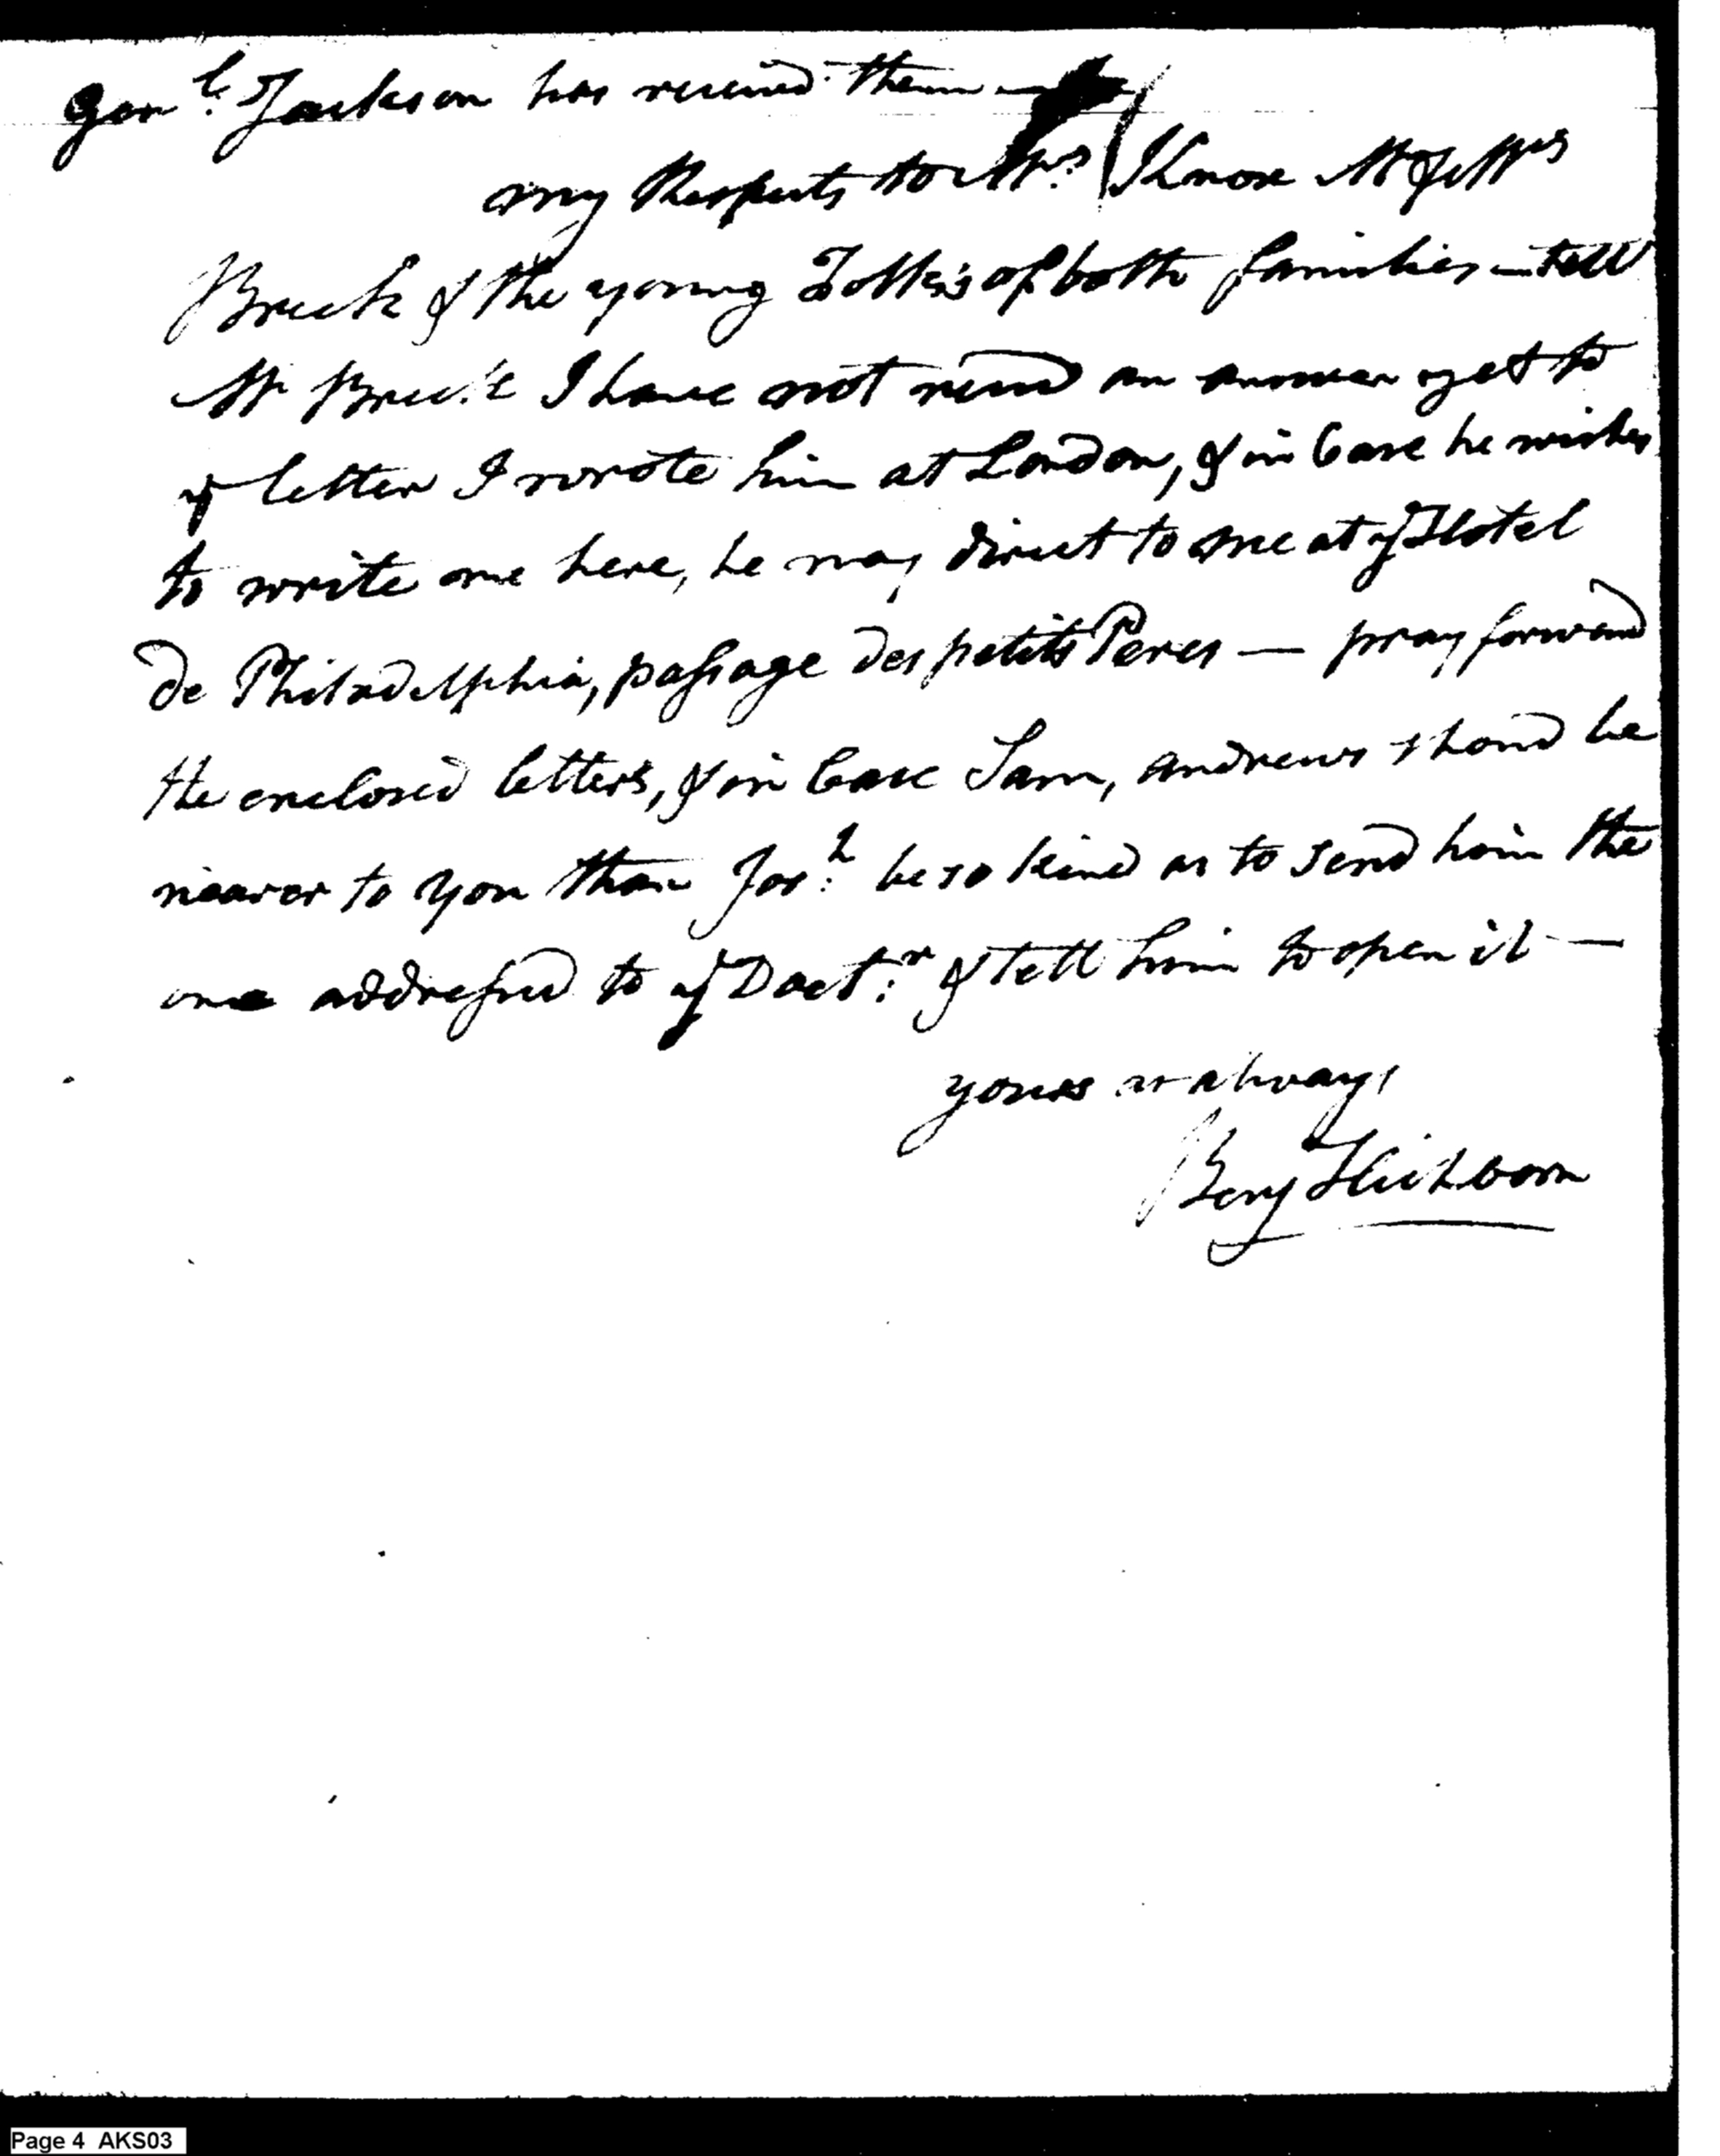 Genl. Jackson has received them —
my Respects to Mrs. Knox Mr & Mrs
Breck & the young Folks of both families — tell
Mr Breck I have not recd an answer yet to
ye letter I wrote him at London, & in Case he wishes
to write me here, he may direct to me at ye Hotel
de Philadelphia, passage des petits Peres — pray forward
the enclosed letters, & in Case Sam, Andrews shoud be
nearer to you than Jos.h be so kind as to send him the
one addressed to ye Doct.r & tell him to open it —
yours as always,
Benj Hichborn
Page 4 AKS03